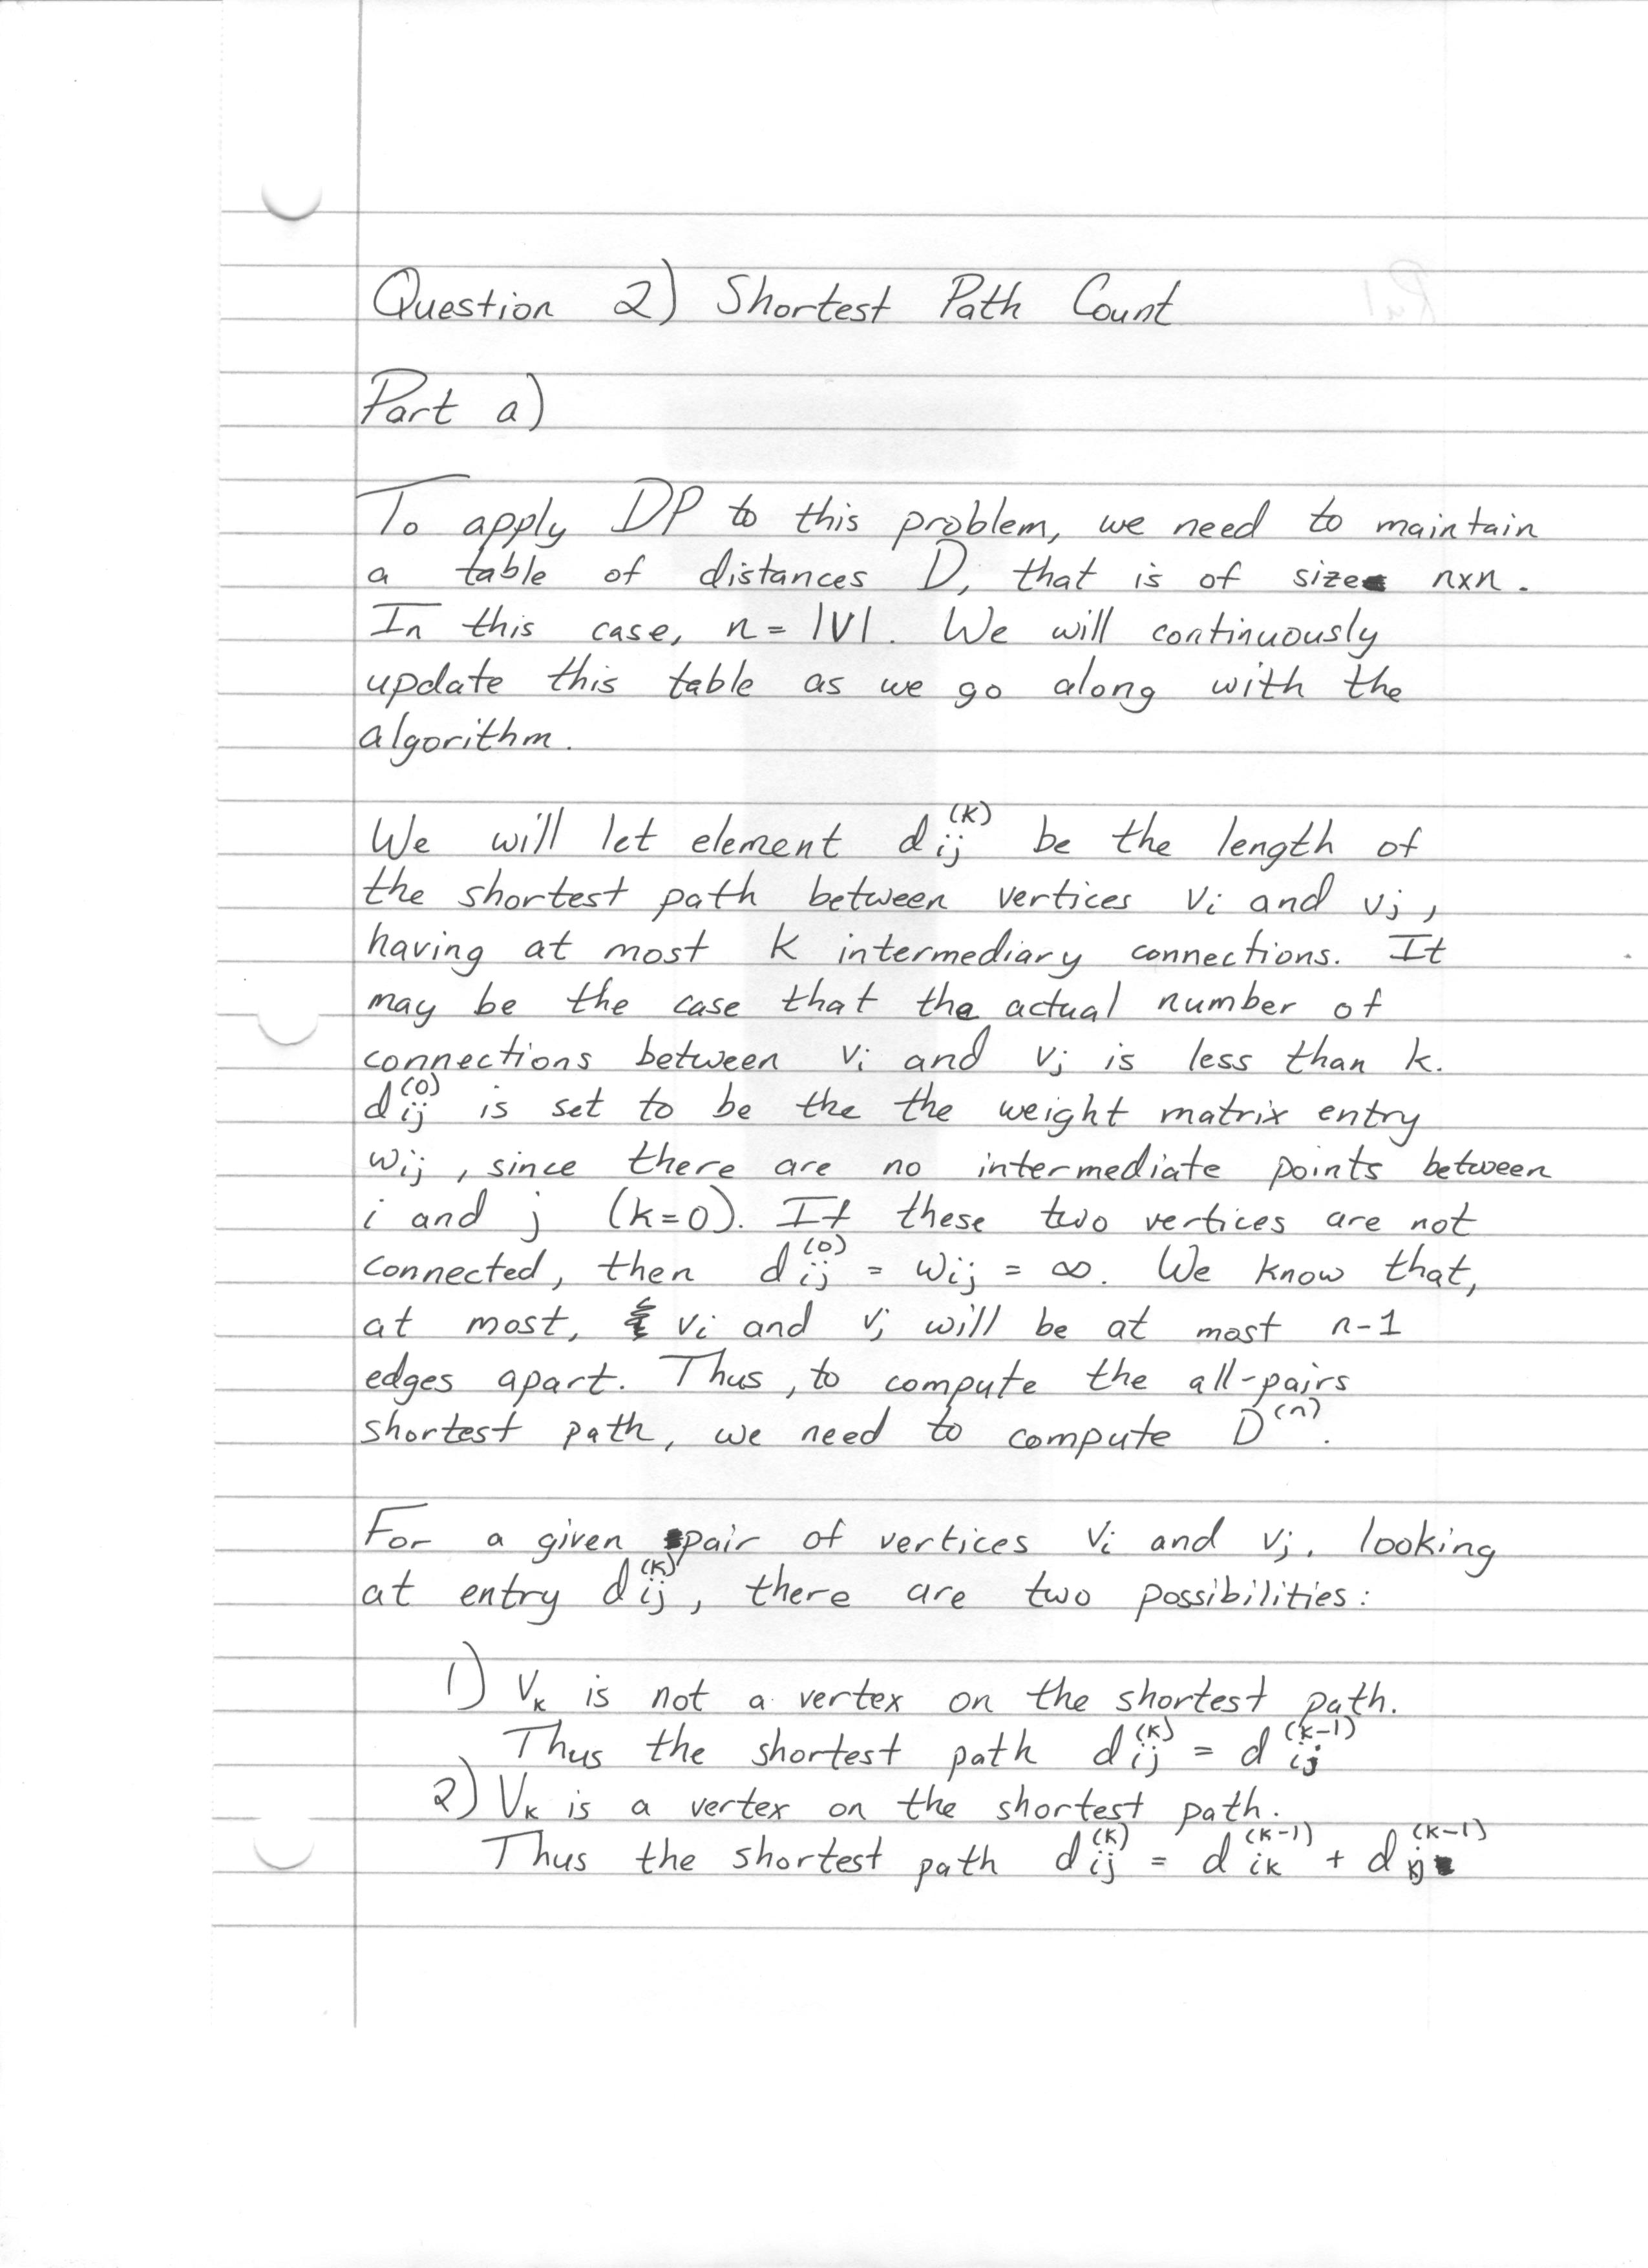 Question 2) Shortest Path Count
Part a)
To apply DP to this problem, we need to maintain
a table of distances D, that is of size n×n.
In this case, n = |V|. We will continuously
update this table as we go along with the
algorithm.
We will let element dij^(k) be the length of
the shortest path between vertices vi and vj,
having at most k intermediary connections. It
may be the case that the actual number of
connections between vi and vj is less than k.
dij^(0) is set to be the the weight matrix entry
wij, since there are no intermediate points between
i and j (k=0). If these two vertices are not
connected, then dij^(0) = wij = ∞. We know that,
at most, vi and vj will be at most n-1
edges apart. Thus, to compute the all-pairs
shortest path, we need to compute D^(n).
For a given pair of vertices vi and vj, looking
at entry dij^(k), there are two possibilities:
1) Vk is not a vertex on the shortest path.
Thus the shortest path dij^(k) = dij^(k-1)
2) Vk is a vertex on the shortest path.
Thus the shortest path dij^(k) = dik^(k-1) + dkj^(k-1)